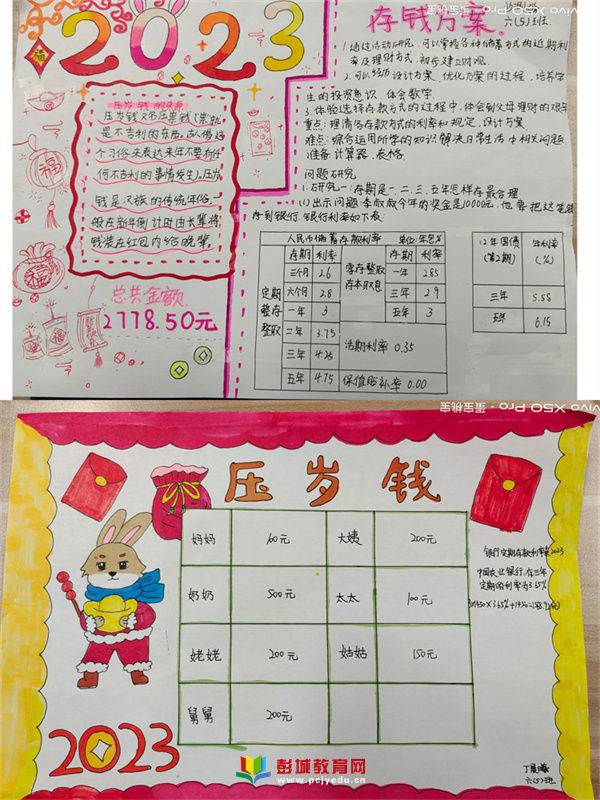 2023
福
压岁钱的来历
压岁钱又名压祟钱(祟就
是不吉利的东西,古人借这
个习俗来表达来年不要有任
何不吉利的事情发生),压岁
钱是汉族的传统年俗,一
般在新年倒计时由长辈将
钱装在红包内给晚辈
总共金额
2778.50元
福
存钱方案
六(5)班
1.通过活动研究,可以掌握各种储蓄方式的近期利
率及理财方式,初步建立财观.
2.可以经历设计方案、优化方案的过程,培养学
生的投资意识,体会数学
3.体验选择存款方式的过程中,体会到父母理财的艰辛
重点:理清各存款方式的利率和规定,设计方案
难点:综合运用所学的知识解决日常生活中相关问题
准备:计算器、表格
问题研究
1.研究一:存期是一、二、三、五年怎样存最合理
(1)出示问题:李叔叔今年的资金是10000元,他要把这笔钱
存到银行,银行利率如下表:
人民币储蓄存款利率 单位:年息%
定期整存整取
存期 利率
三个月 2.6
六个月 2.8
一年 3
二年 3.75
三年 4.25
五年 4.75
零存整取
存本取息
存期 利率
一年 2.85
三年 2.9
五年 3
活期利率 0.35
保值贴补率 0.00
12年国债(第2期) 年利率(%)
三年 5.58
五年 6.15
vivo X50 Pro·蛋宝鲍车
vivo X50 Pro·蛋宝鲍车
压岁钱
妈妈 60元 大姨 200元
奶奶 500元 太太 100元
姥姥 200元 姑姑 150元
舅舅 200元
银行定期存款利率表2023
中国农业银行,存三年
定期的利率为3.65%
2023
丁
六(5)班
彭城教育网
www.pcjyedu.cn